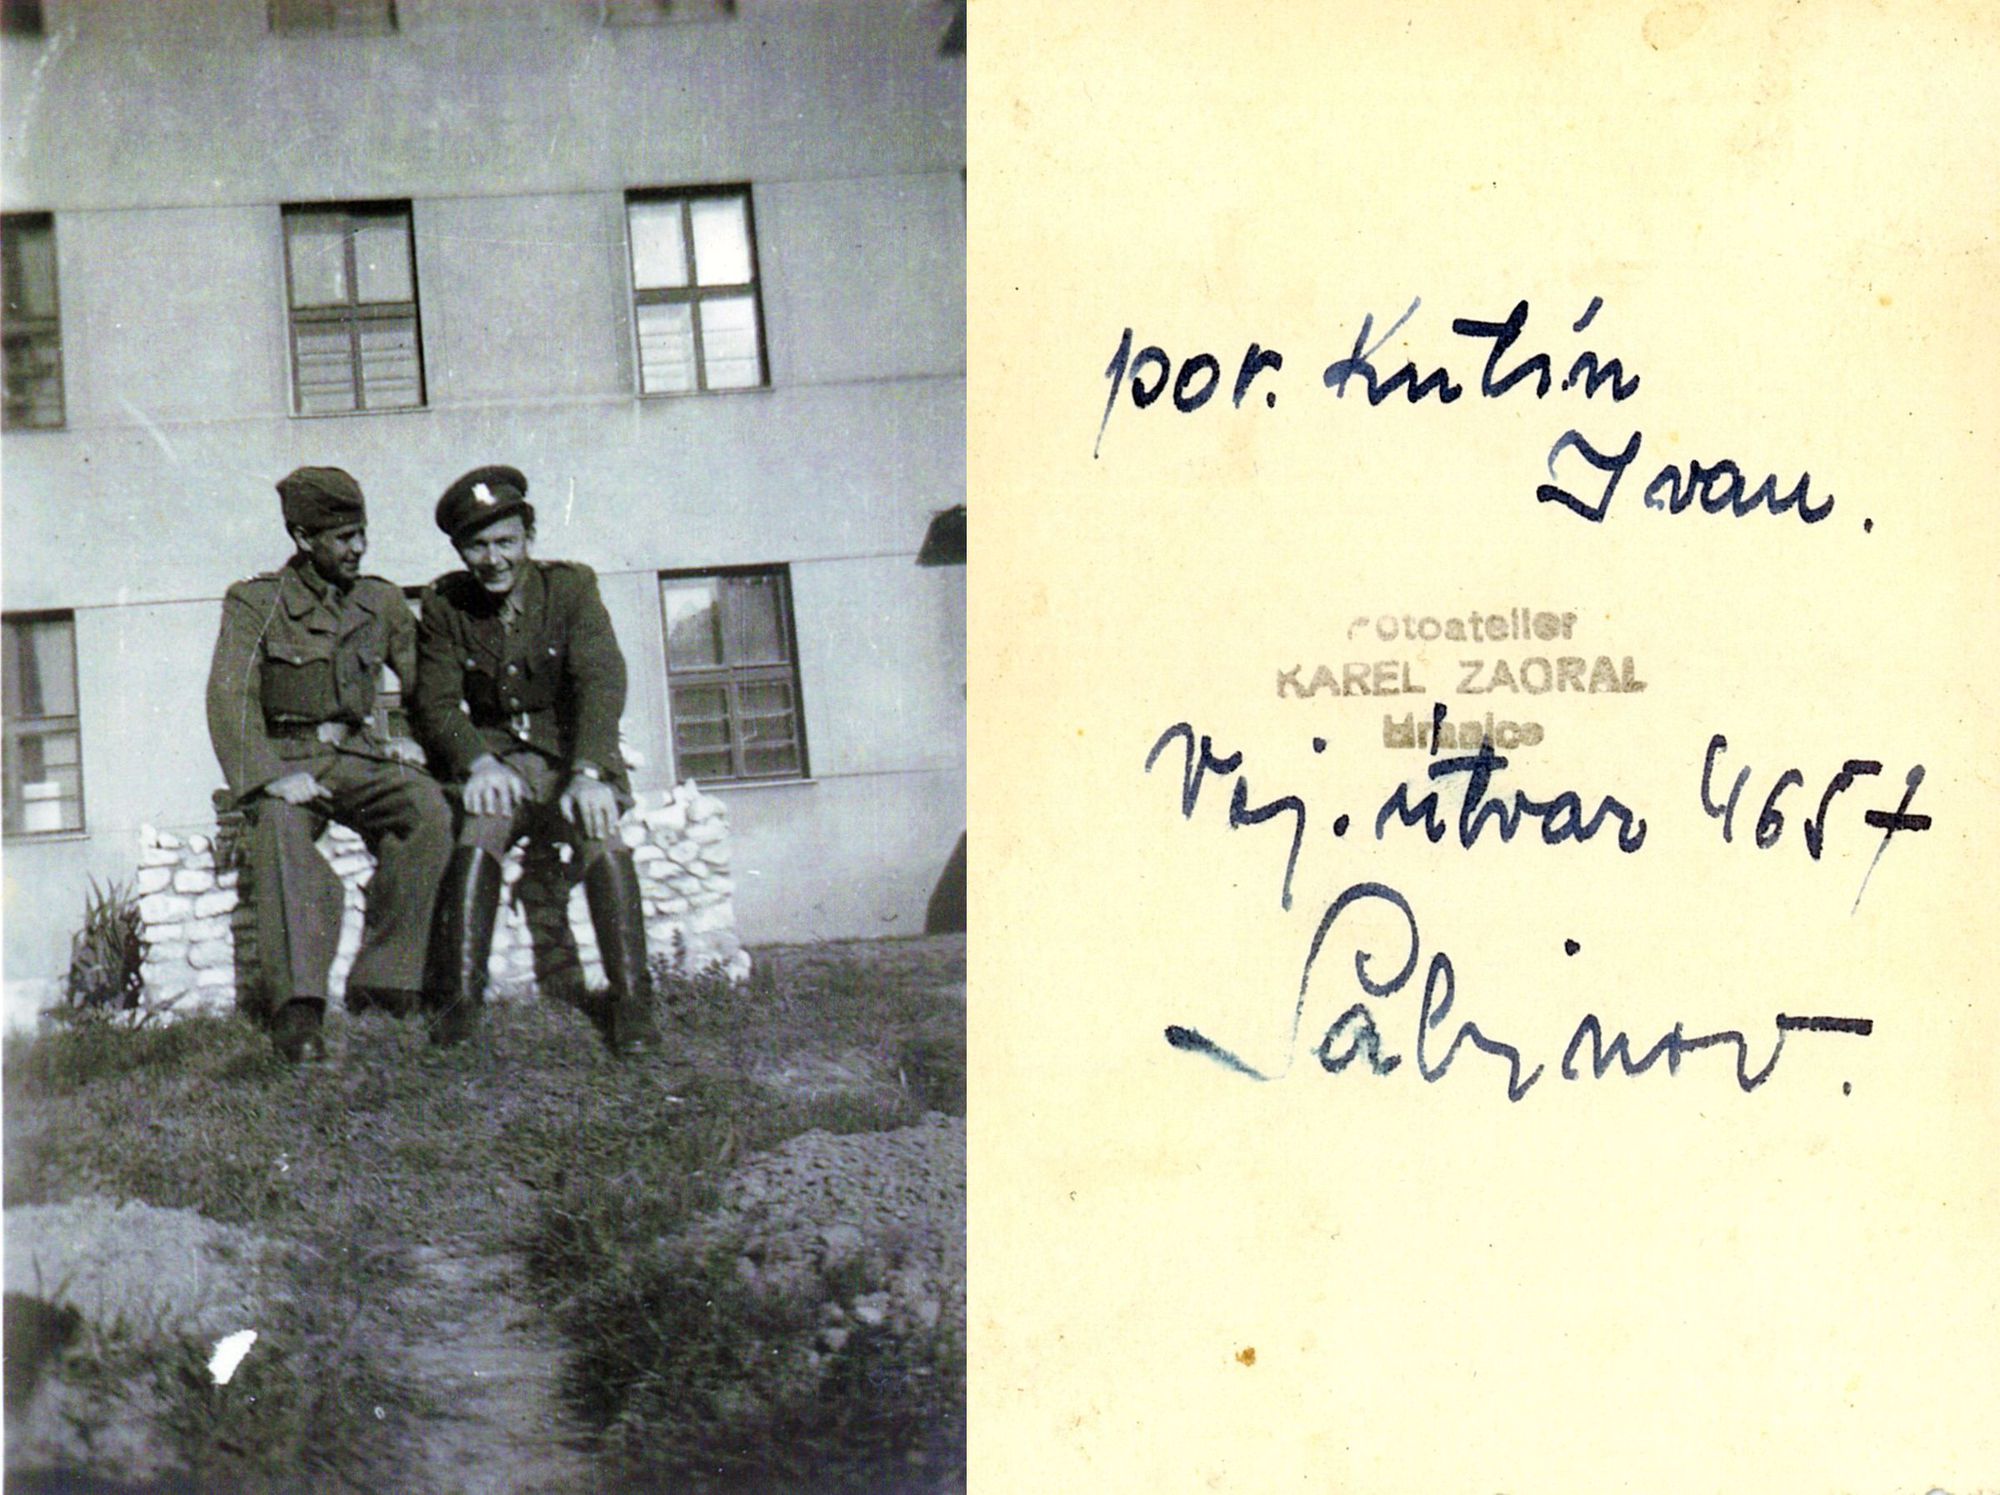 por. Kutín
Ivan.
Fotoatelier
KAREL ZAORAL
Hranice
Voj. útvar 4657
Sabinov.